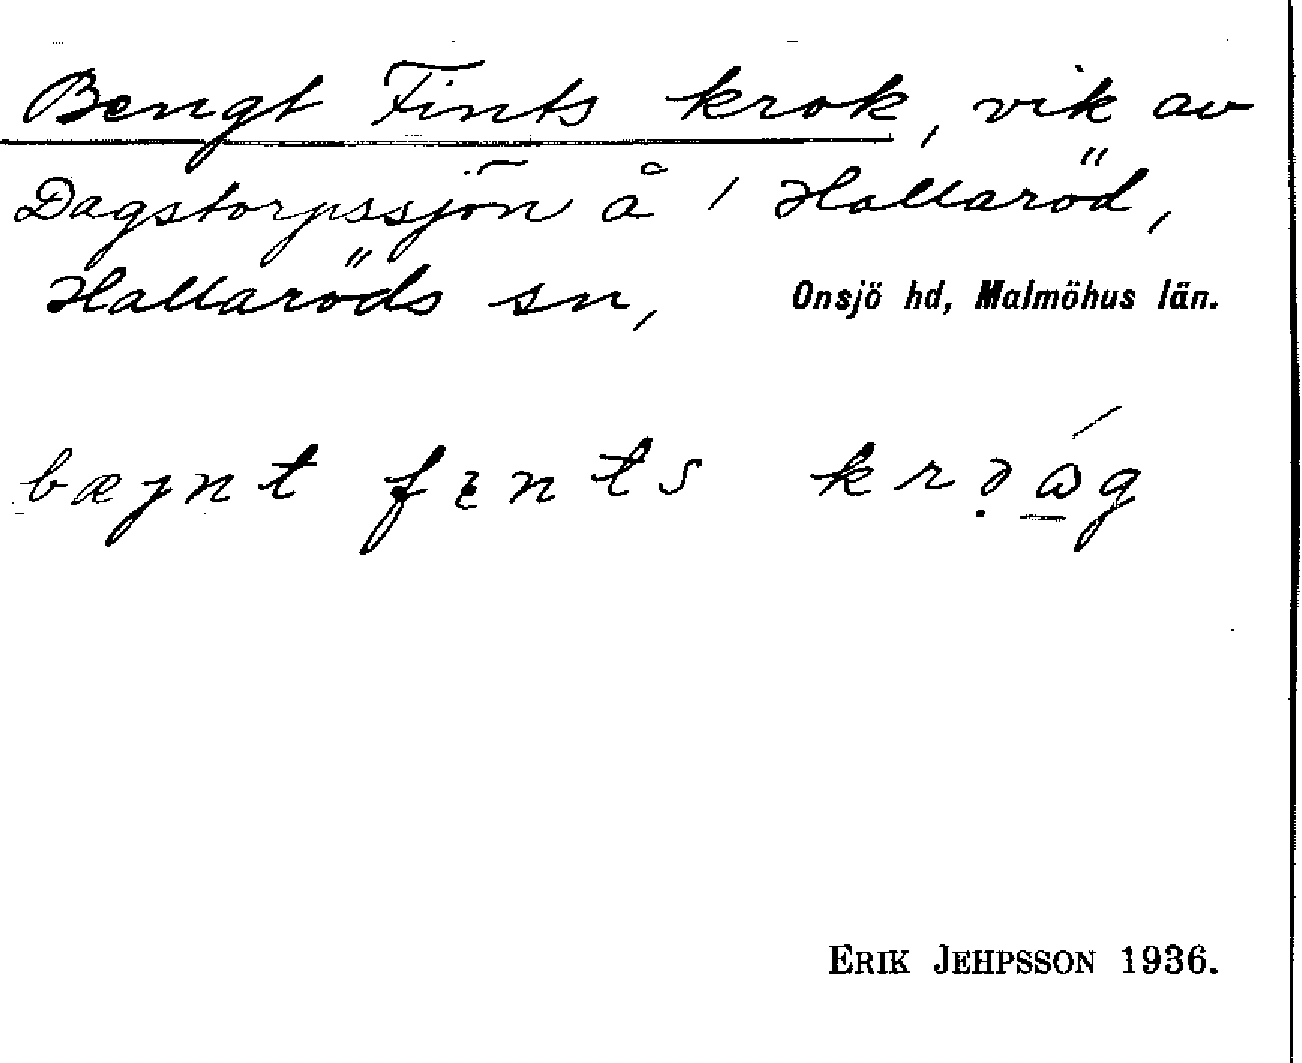 Bengt Fints krok, vik av
Dagstorpssjön å 1 Hallaröd,
Hallaröds sn, Onsjö hd, Malmöhus län.
bæynt fınts
ERIK JEHPSSON 1936.